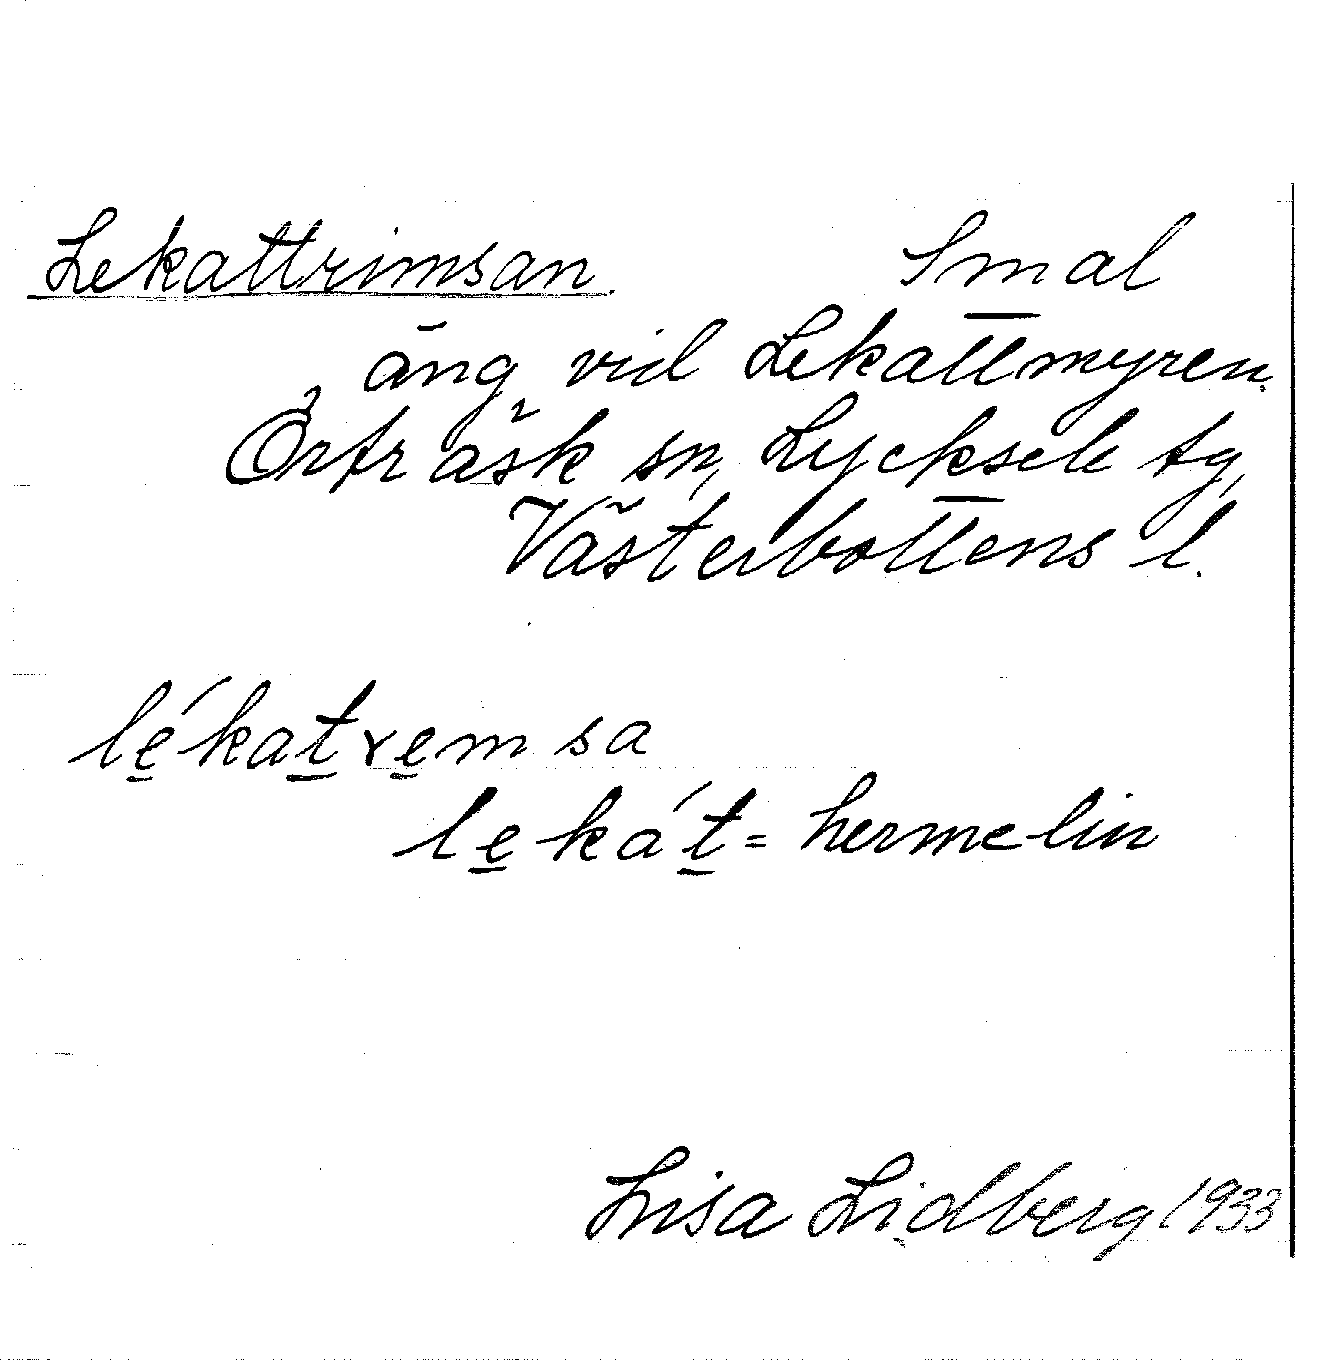 Lekattrimsan. Smal
äng vid Lekattmyren.
Örträsk sn, Lycksele tg,
Västerbottens l.
lé̱kaṯre̱msa
le̱káṯ = hermelin
Lisa Lidberg 1933